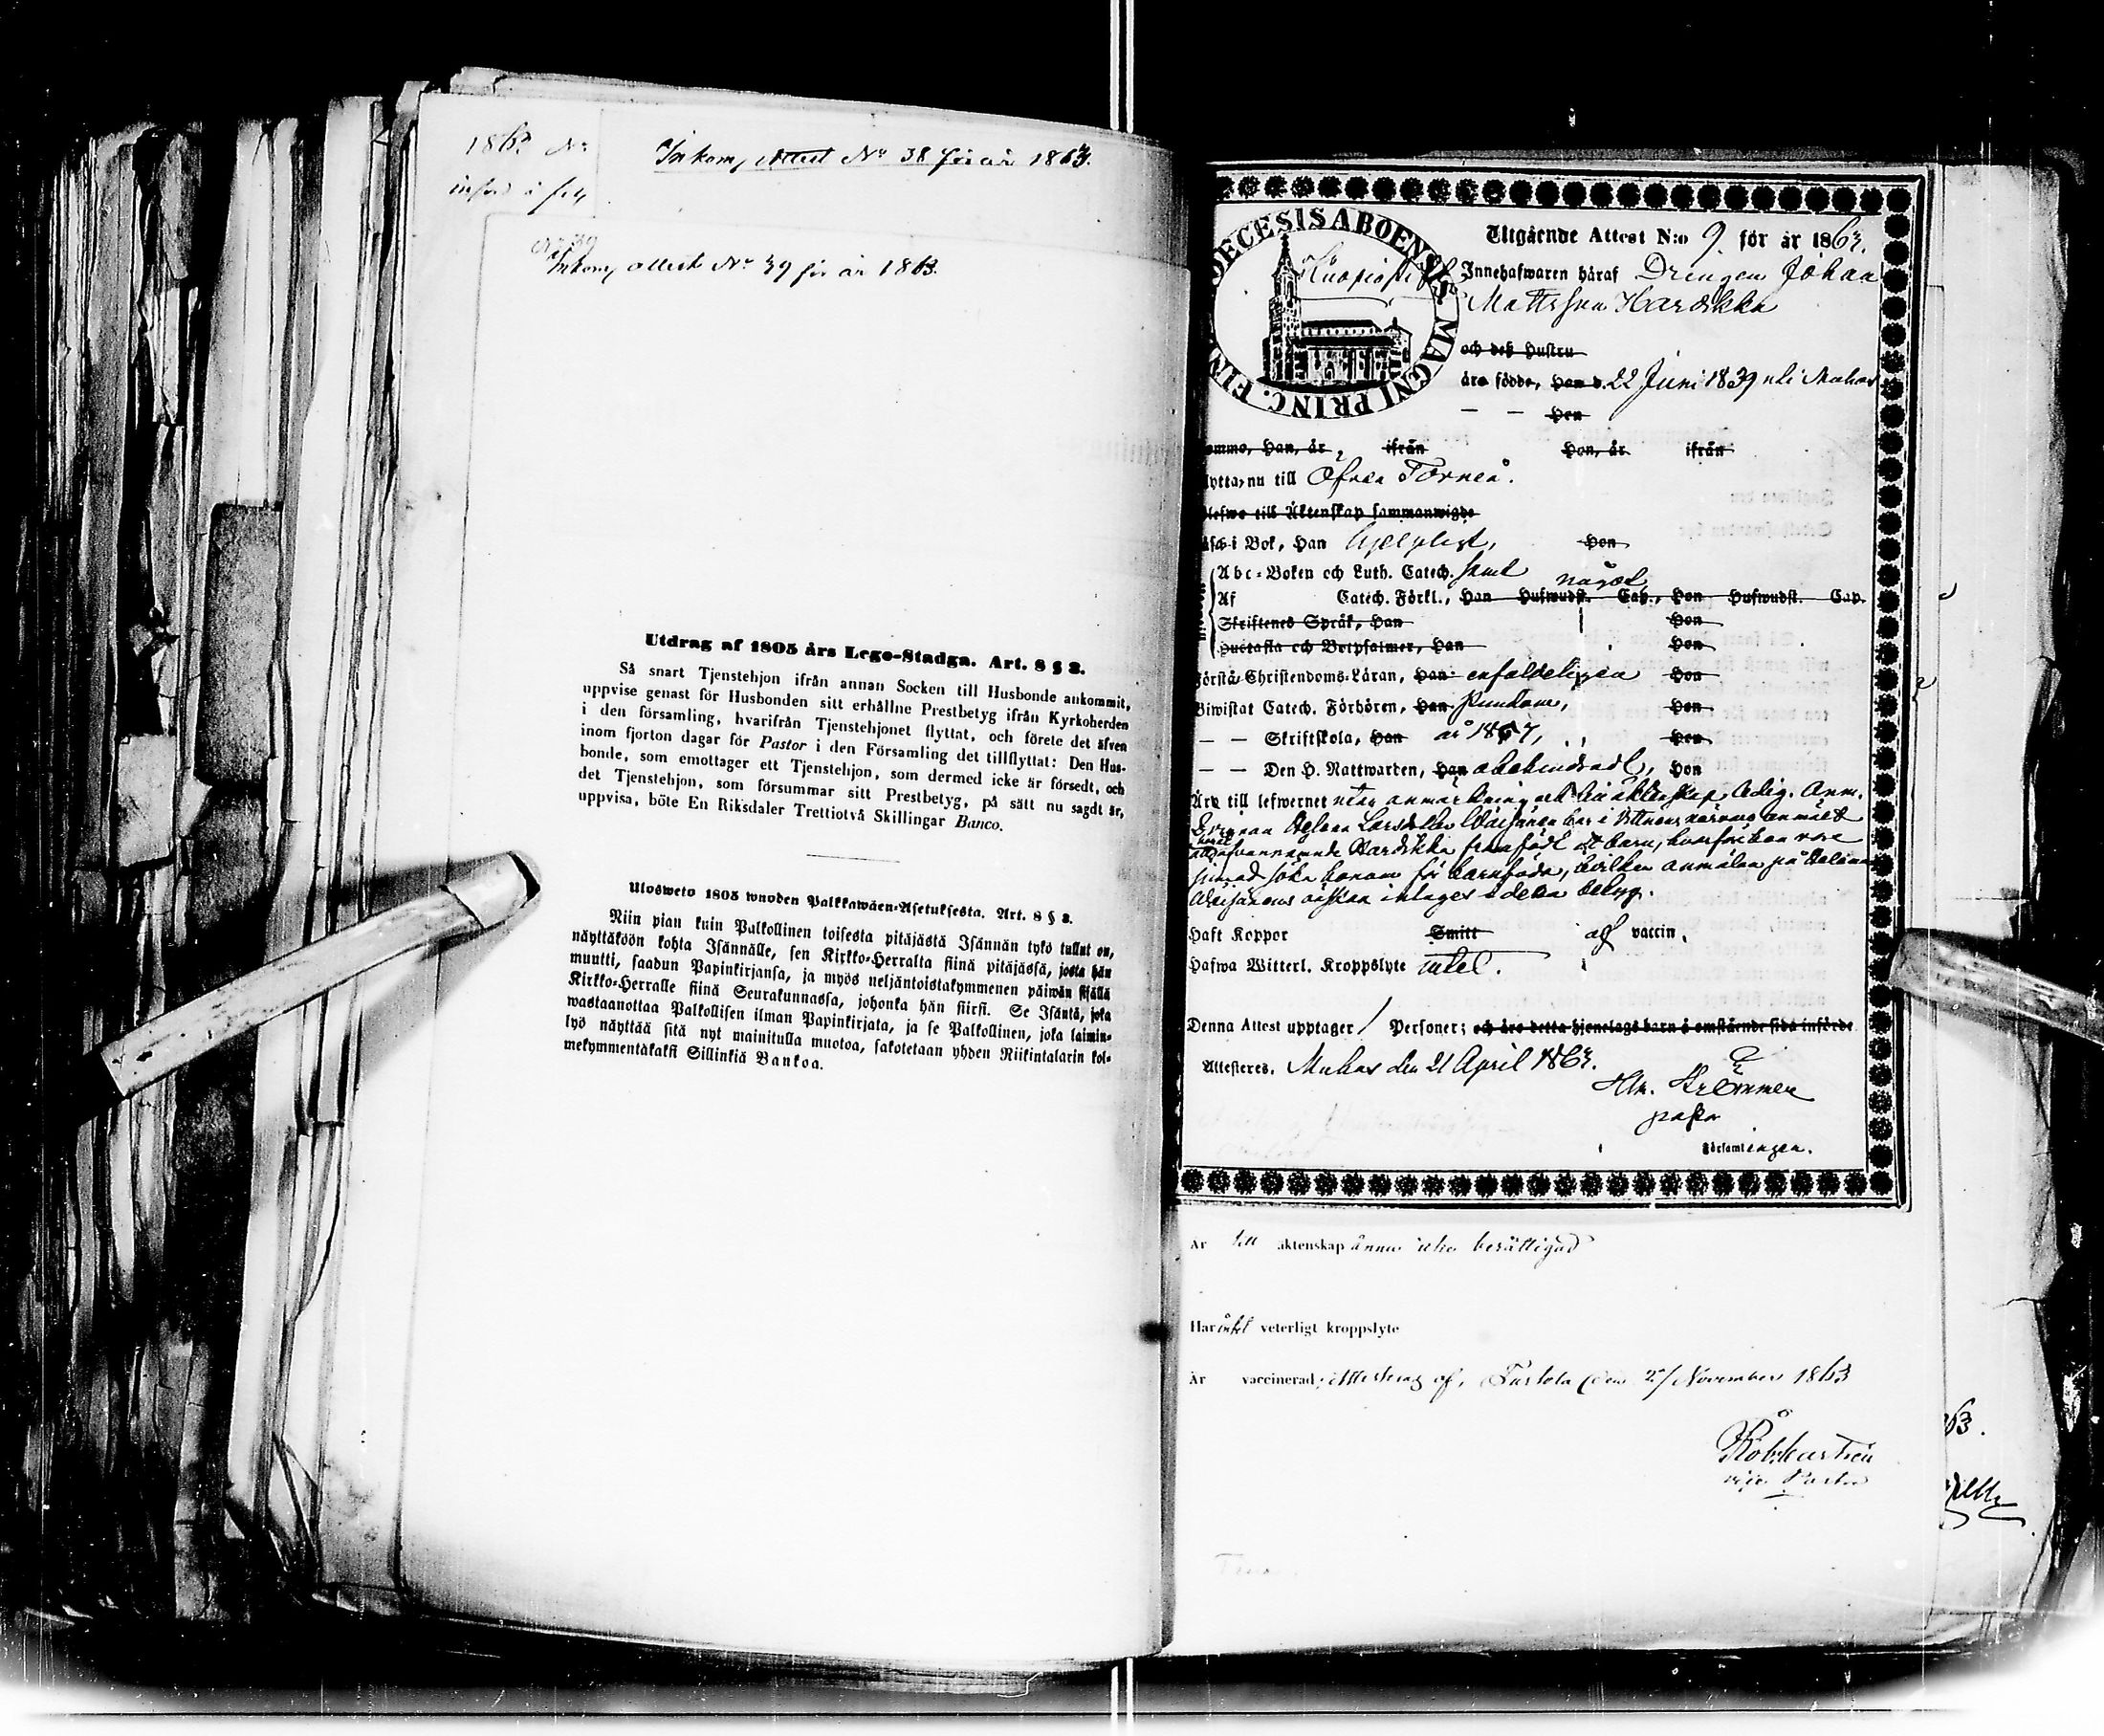 1863 No
införd å fol.
Inkom. Attest No 38 för år 1863.
No 39
Inkom. attest No 39 för år 1863.
Utdrag af 1805 års Lego-Stadga. Art. 8 § 3.
Så snart Tjenstehjon ifrån annan Socken till Husbonde ankommit,
uppvise genast för Husbonden sitt erhållne Prestbetyg ifrån Kyrkoherden
i den församling, hvarifrån Tjenstehjonet flyttat, och förete det äfven
inom fjorton dagar för Pastor i den Församling det tillflyttat: Den Hus-
bonde, som emottager ett Tjenstehjon, som dermed icke är försedt, och
det Tjenstehjon, som försummar sitt Prestbetyg, på sätt nu sagdt är,
uppvisa, böte En Riksdaler Trettiotvå Skillingar Banco.
Ulosweto 1805 wuoden Palkkawäen-Asetuksesta. Art. 8 § 3.
Niin pian kuin Palkollinen toisesta pitäjästä Isännän tykö tullut on,
näyttäköön kohta Isännälle, sen Kirkko-Herralta siinä pitäjässä, josta hän
muutti, saadun Papinkirjansa, ja myös neljäntoistakymmenen päiwän sisällä
Kirkko-Herralle siinä Seurakunnassa, johonka hän siirsi. Se Isäntä, joka
wastaanottaa Palkollisen ilman Papinkirjata, ja se Palkollinen, joka laimin-
lyö näyttää sitä nyt mainitulla muotoa, sakotetaan yhden Riikintalarin kol-
mekymmentäkaksi Sillinkiä Bankoa.
DECESIS ABOENSIS MAGNI PRINC. FIN
Kuopio stift
Utgående Attest N:o 9 för år 1863.
Innehafwaren häraf Drengen Johan
Mattsson Hardikka
och deß Hustru
äro födde, Han d. 22 Juni 1839 uti Muhos
— — Hon
ommo, Han, år, ifrån Hon, år ifrån
lytta, nu till Öfver Torneå.
blefwo till Äktenskap sammanwigde
äsa i Bok, Han hjelpligt, Hon
Abc-Boken och Luth. Catech. samt något
Af Catech. Förkl., Han Hufwudst. Cap., Hon Hufwudst. Cap.
Skriftenes Språk, Han Hon
Hustafla och Botpsalmer, Han Hon
Förstå Christendoms-Läran, Han enfaldeligen Hon
Biwistat Catech. Förhören, Han stundom, Hon
— — Skriftskola, Han år 1857, Hon
— — Den H. Nattwarden, Han obehindradt, Hon
Äro till lefwernet utan anmärkning och till äktenskap ledig. Anm.
Helena Larsdotter Väisänen har i vittnens närvaro anmält
Hardikka framfödt barn, hvarföre hon vore
sinnad söka honom för barnafader, hvilken anmälan på Helena
Väisänens önskan intages i detta betyg.
Haft Koppor Smitt af vaccin.
Hafwa Witterl. Kroppslyte intet.
Denna Attest upptager 1 Personer; och äro detta hjonelags barn å omstående sida införde
Attesteres, Muhos den 21 April 1863.
pastor
Församlingen.
Är till äktenskap ännu icke berättigad
Har intet veterligt kroppslyte
Är vaccinerad; Attesteras af, Turtola den 2/ November 1863
vice Pastor
63.